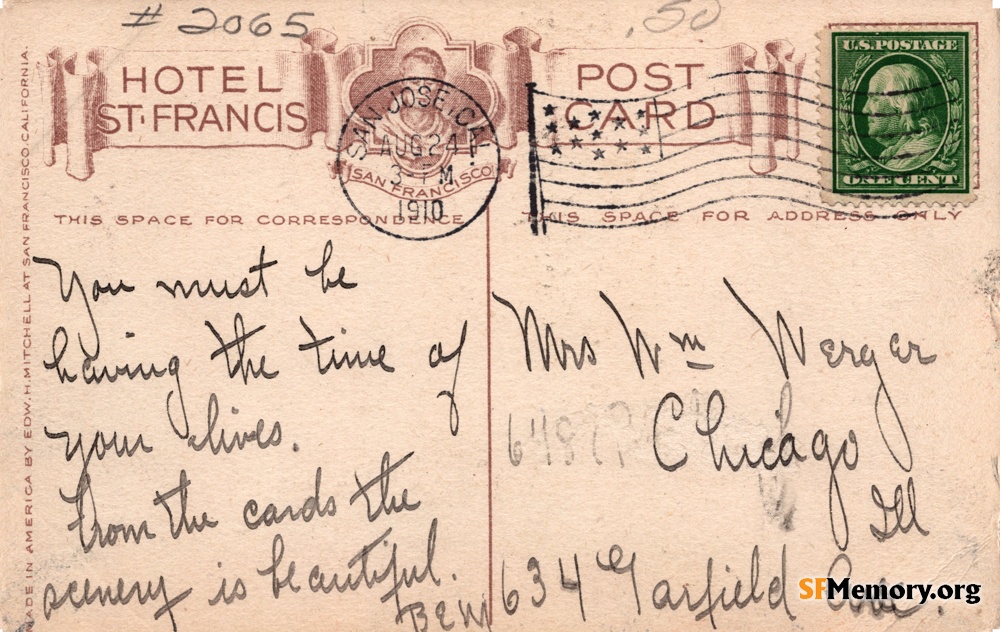 # 2065
50
HOTEL
ST. FRANCIS
SAN FRANCISCO
POST
CARD
SAN JOSE, CAL
AUG 24
3 - PM
1910
U.S. POSTAGE
ONE CENT
THIS SPACE FOR CORRESPONDENCE
THIS SPACE FOR ADDRESS ONLY
MADE IN AMERICA BY EDW. H. MITCHELL AT SAN FRANCISCO, CALIFORNIA.
You must be
having the time of
your lives.
From the cards the
scenery is beautiful.
BEW
Mrs Wm Werger
Chicago
Ill
634 Garfield Ave.
SFMemory.org